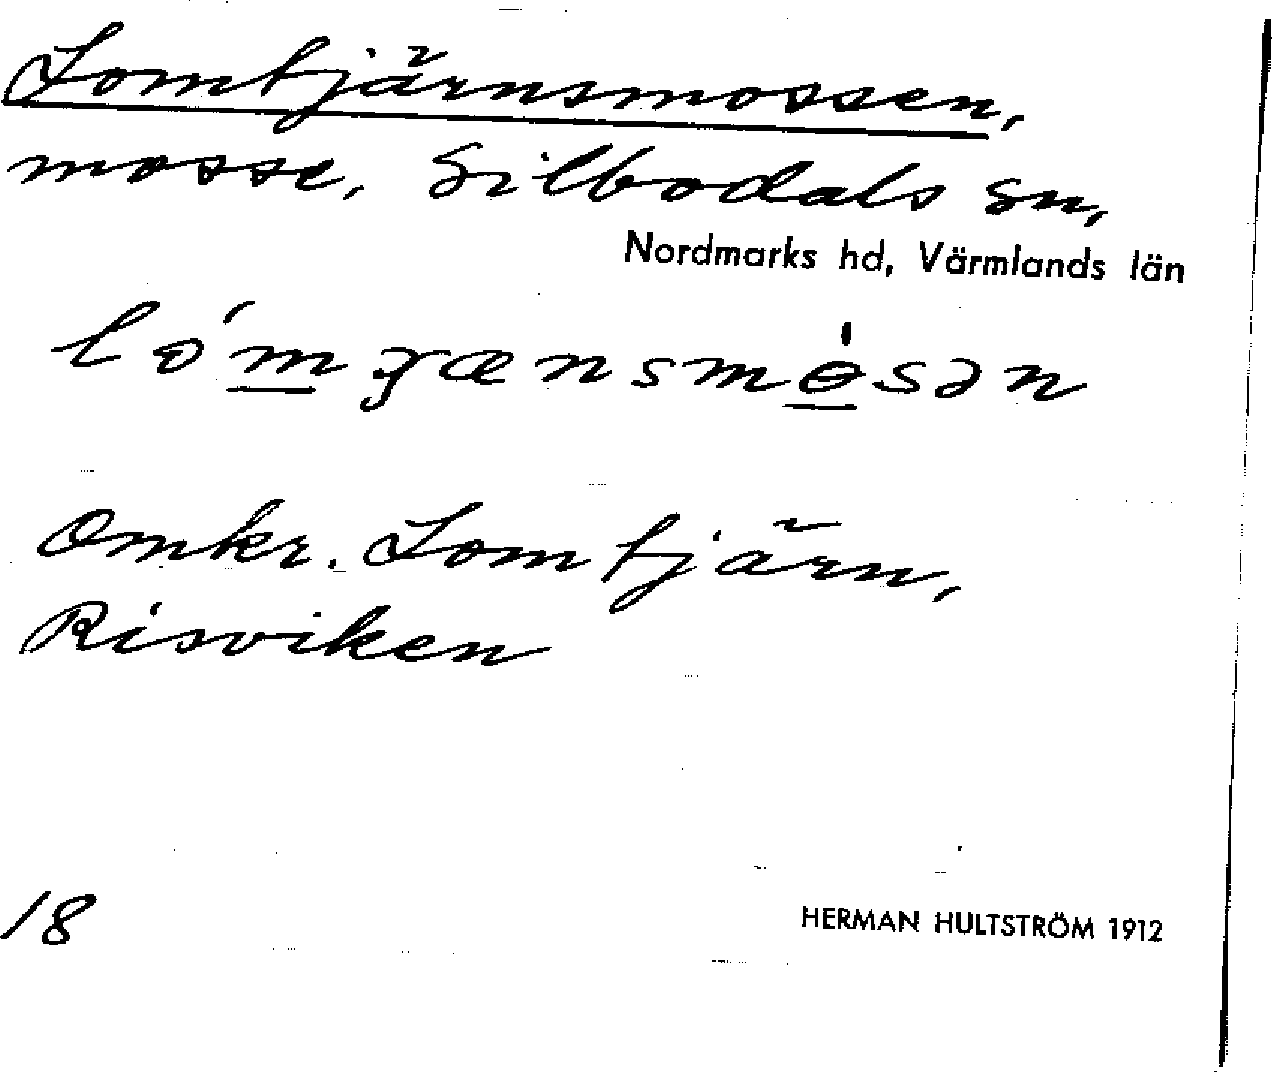 Lomtjärnsmossen,
mosse, Silbodals sn,
Nordmarks hd, Värmlands län
Omkr. Lomtjärn,
Risviken
18
HERMAN HULTSTRÖM 1912